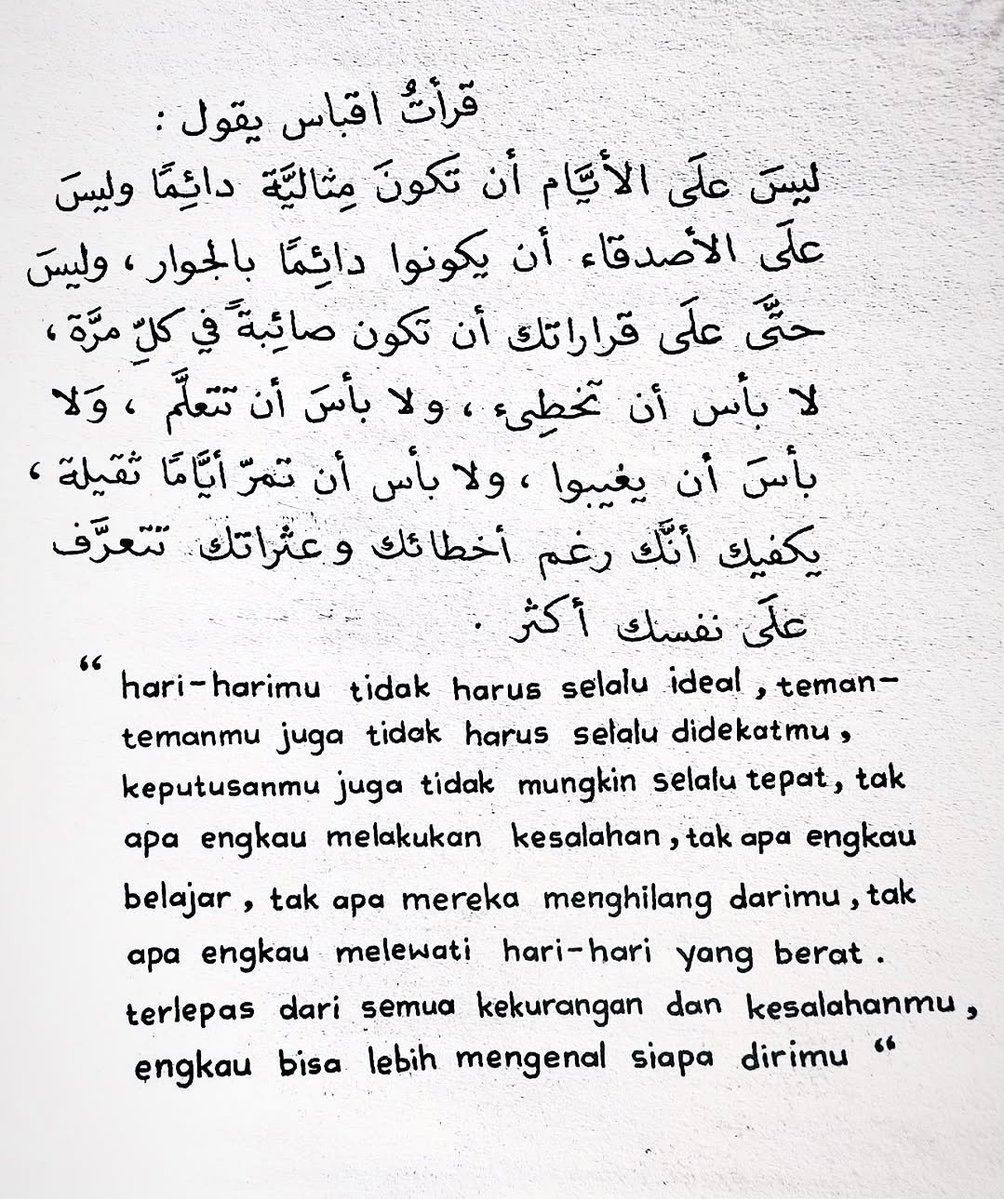 قرأتُ اقباس يقول :
ليسَ علَى الأيَّام أن تَكونَ مِثاليَّة دائِمًا وليسَ
علَى الأصدقاء أن يكونوا دائِمًا بالجوار ، وليسَ
حتَّى علَى قراراتك أن تَكون صائِبةً في كلِّ مرَّة ،
لا بأس أن تخطِىء ، ولا بأسَ أن تتعلَّم ، وَلا
بأسَ أن يغيبوا ، ولا بأس أن تمرّ أيَّامًا ثقيلة ،
يكفيك أنَّك رغم أخطائك وعثراتك تتعرَّف
علَى نفسك أكثر .
“ hari-harimu tidak harus selalu ideal , teman-
temanmu juga tidak harus selalu didekatmu ,
keputusanmu juga tidak mungkin selalu tepat , tak
apa engkau melakukan kesalahan , tak apa engkau
belajar , tak apa mereka menghilang darimu , tak
apa engkau melewati hari-hari yang berat .
terlepas dari semua kekurangan dan kesalahanmu ,
engkau bisa lebih mengenal siapa dirimu “